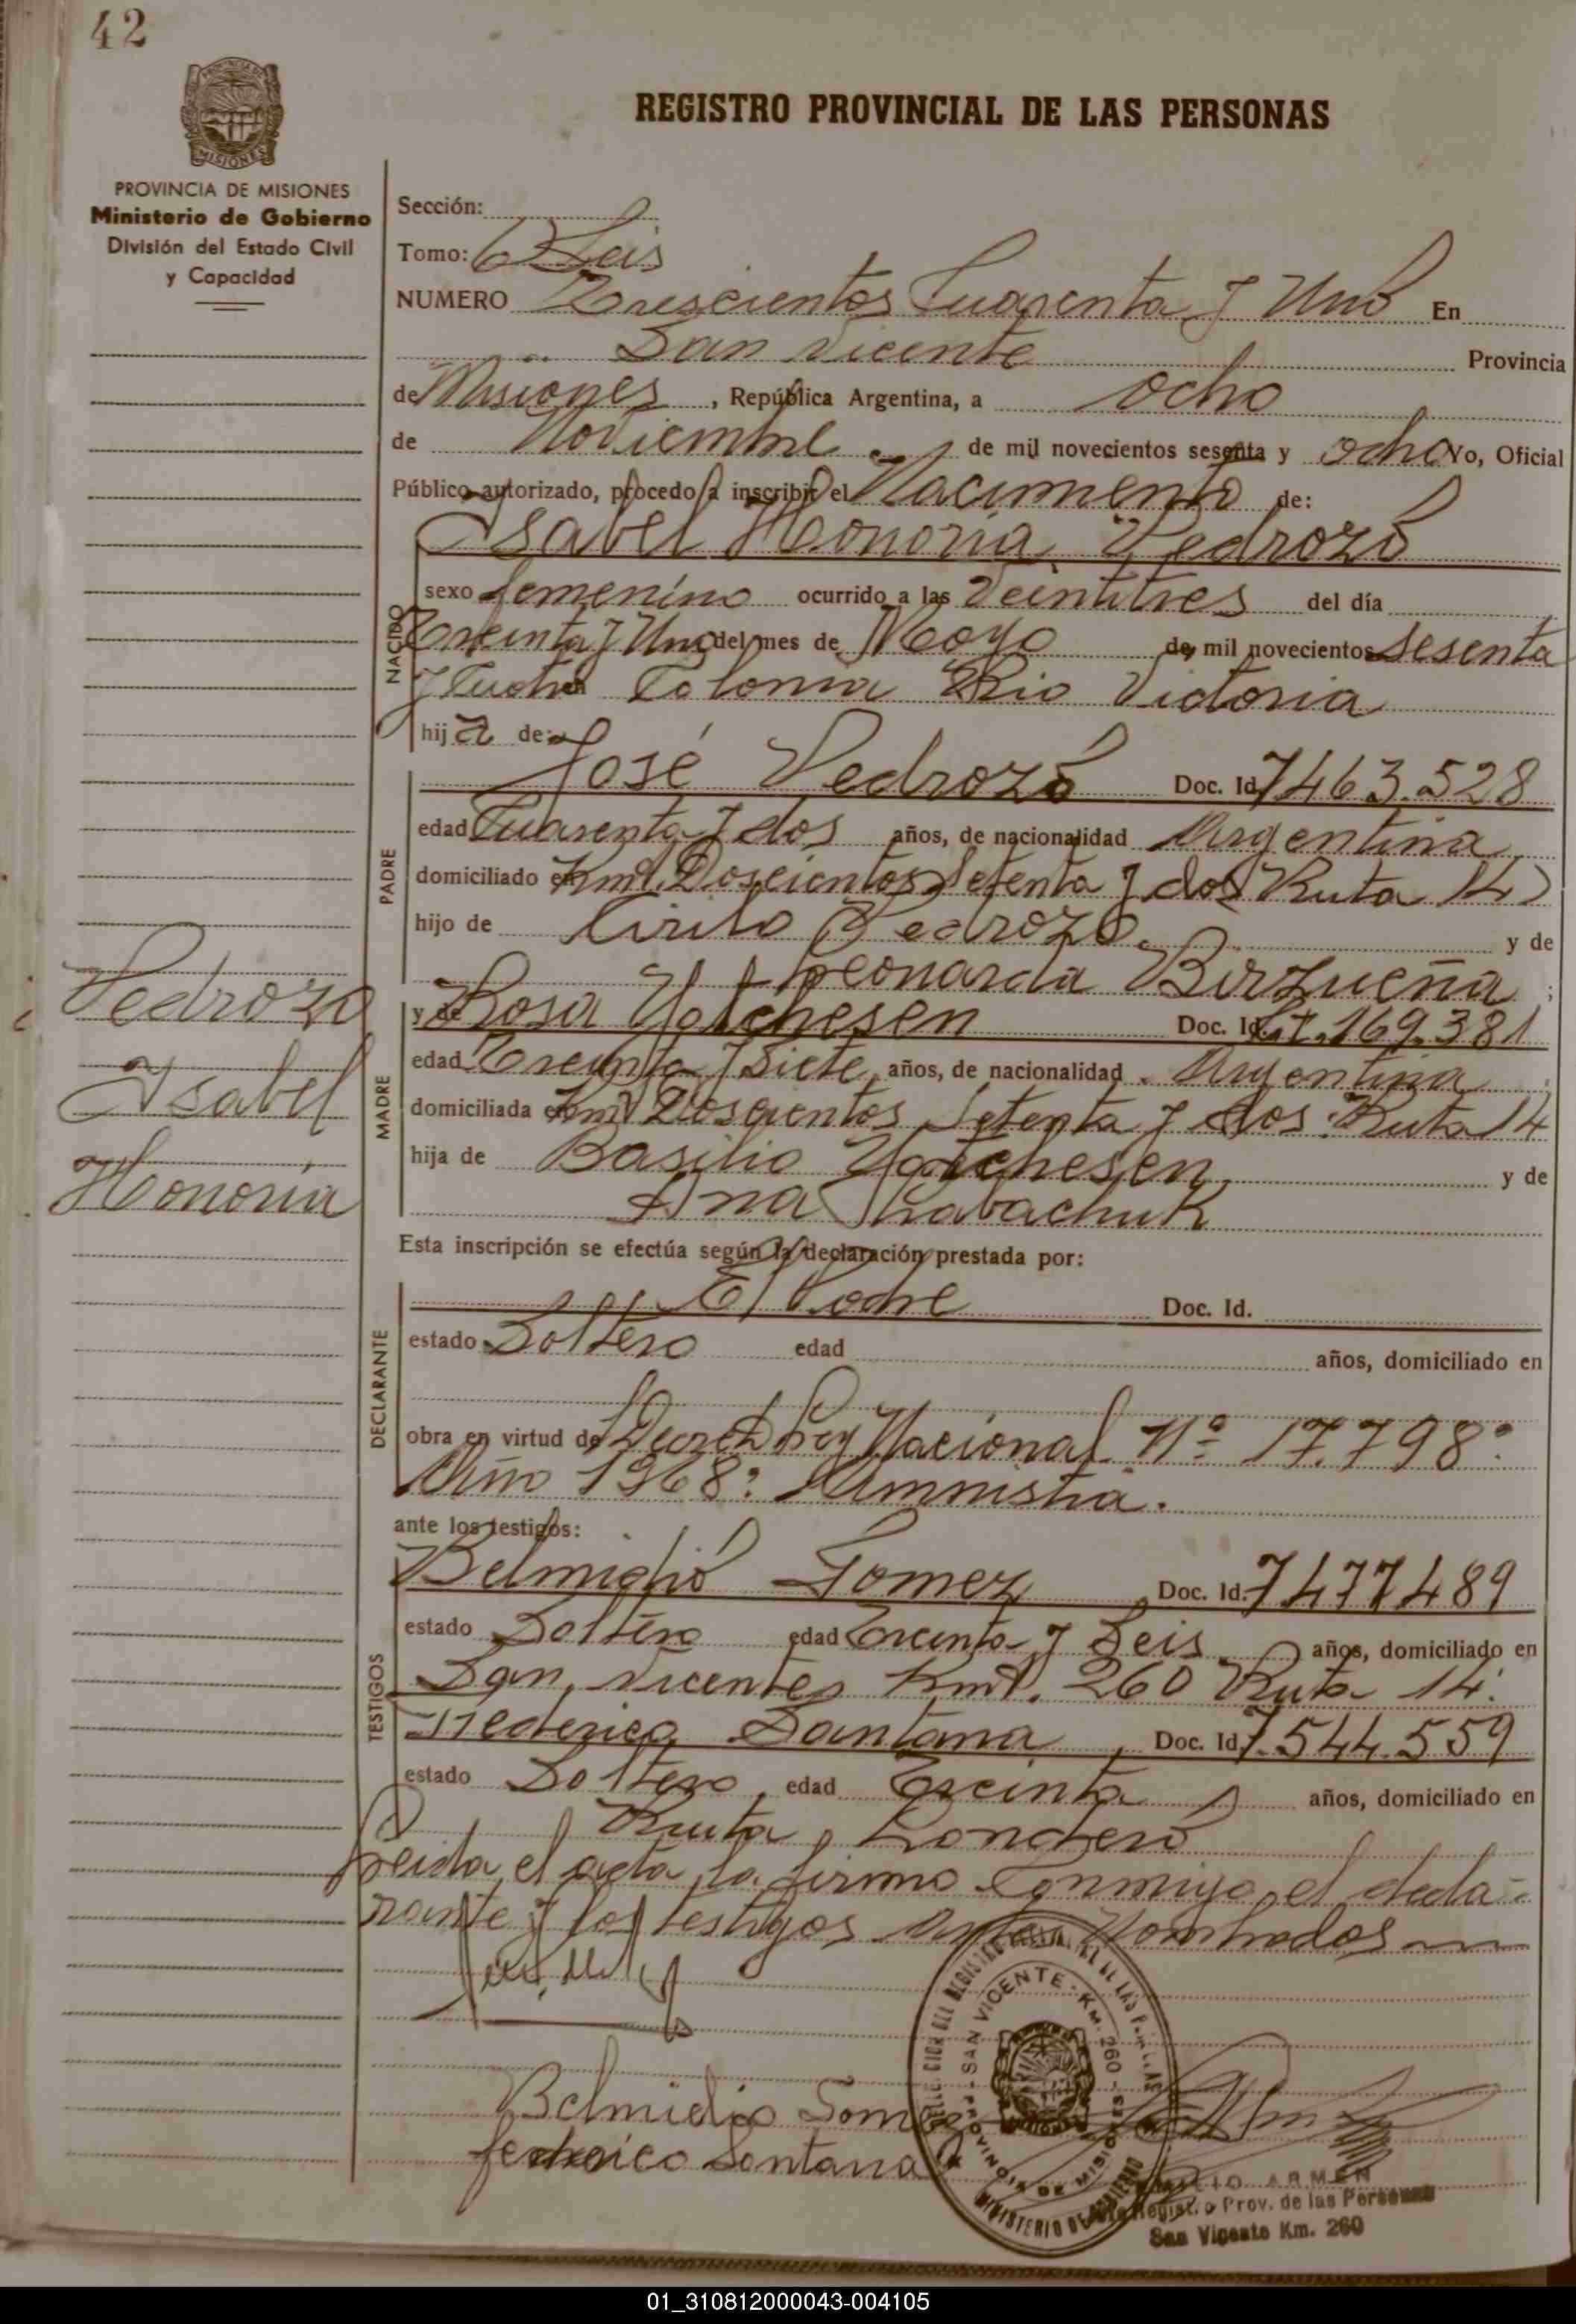 42
REGISTRO PROVINCIAL DE LAS PERSONAS
MISIONES
PROVINCIA DE MISIONES
Ministerio de Gobierno
División del Estado Civil
y Capacidad
Sección:
Tomo: 6 Seis
NUMERO Trescientos Cuarenta y Uno En
San Vicente Provincia
de Misiones, República Argentina, a ocho
de Noviembre de mil novecientos sesenta y ocho Yo, Oficial
Público autorizado, procedo a inscribir el Nacimiento de:
Isabel Honoria Pedrozo
NACIDO
sexo femenino ocurrido a las Veintitres del día
Treinta y Uno del mes de Mayo de mil novecientos Sesenta
y en Colonia Rio Victoria
hija de:
PADRE
José Pedrozo Doc. Id. 7463.528
edad Cuarenta y dos años, de nacionalidad Argentina
domiciliado en Kmt. Doscientos Setenta y dos Ruta 14
hijo de Cirilo Pedrozo y de
Leonarda ;
MADRE
y de Rosa Doc. Id. 169.381
edad Treinta y Siete años, de nacionalidad Argentina
domiciliada en Kmt Doscientos Setenta y dos Ruta 14
hija de Basilio y de
Ana
Pedrozo
Isabel
Honoria
Esta inscripción se efectúa según la declaración prestada por:
DECLARANTE
El Padre Doc. Id.
estado Soltero edad años, domiciliado en
obra en virtud de Decreto Ley Nacional Nº 17.798:
Año 1968: Amnistia.
ante los testigos:
TESTIGOS
Belmidio Gomez Doc. Id. 7477489
estado Soltero edad Treinta y Seis años, domiciliado en
San Vicente Kmt. 260 Ruta 14.
Federico Santana, Doc. Id. 7.544.559
estado Soltero, edad Treinta años, domiciliado en
Ruta
Leida el acta, la firma Conmigo, el decla-
rante y los testigos Antes Nombrados
Belmidio Gomez
federico Santana
SAN VICENTE - KM. 260
PROVINCIA DE MISIONES
MINISTERIO DE GOBIERNO
ARMEN
Registro Prov. de las Personas
San Vicente Km. 260
01_310812000043-004105